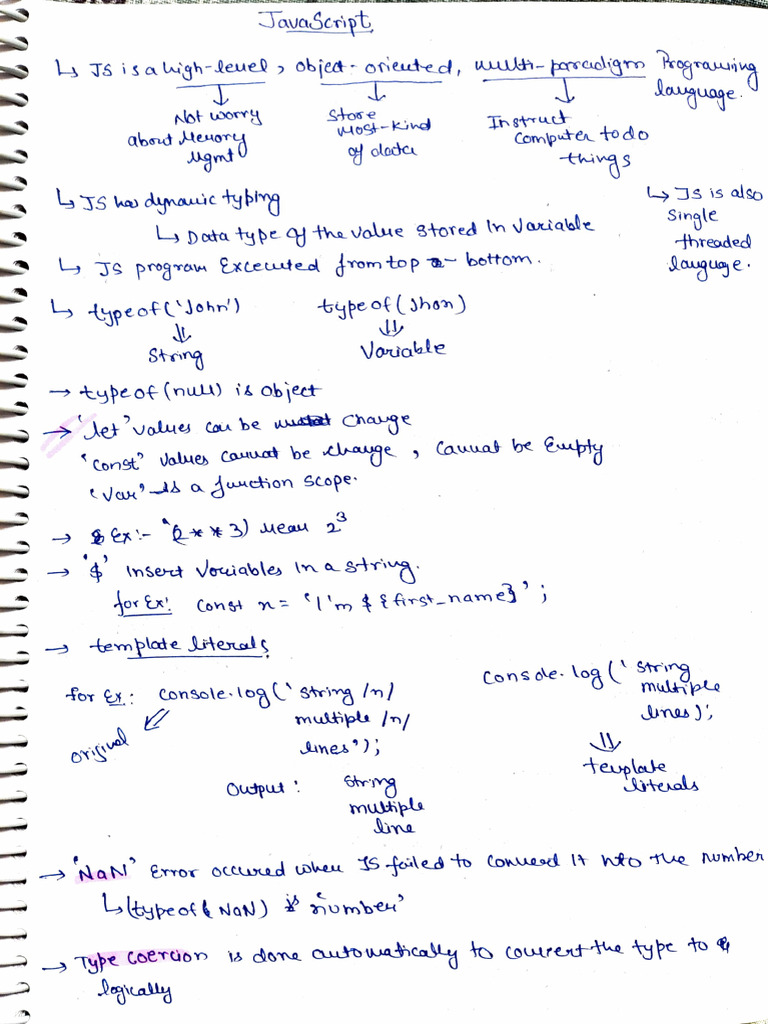 JavaScript
↳ JS is a high-level, object-oriented, multi-paradigm Programing language.
Not worry about Memory Mgmt
Store Most-kind of data
Instruct Computer to do things
↳ JS has dynamic typing
↳ Data type of the value stored in variable
↳ JS is also single threaded language.
↳ JS program Excecuted from top - bottom.
↳ typeof('John') typeof(Jhon)
String Variable
→ typeof(null) is object
→ 'let' values can be change
'const' values cannot be change, cannot be Empty
'var' is a function scope.
→ Ex:- (2**3) mean 2³
→ '$' insert variables in a string.
for Ex: const n = 'I'm ${first_name}';
→ template literals
for Ex: console.log('string /n/
multiple /n/
lines');
original
Output: string
multiple
line
console.log('string
multiple
lines);
template
literals
→ 'NaN' Error occured when JS failed to convert it into the number
↳ (typeof( NaN) is 'number'
→ Type coercion is done automatically to convert the type to
logically